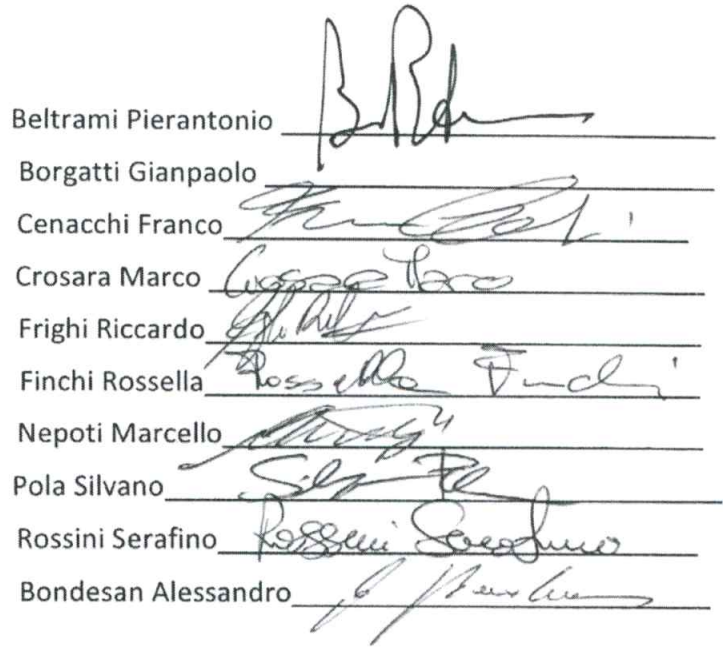 Beltrami Pierantonio
Borgatti Gianpaolo
Cenacchi Franco
Crosara Marco Crosara Marco
Frighi Riccardo
Finchi Rossella Rossella Finchi
Nepoti Marcello
Pola Silvano
Rossini Serafino Rossini Serafino
Bondesan Alessandro